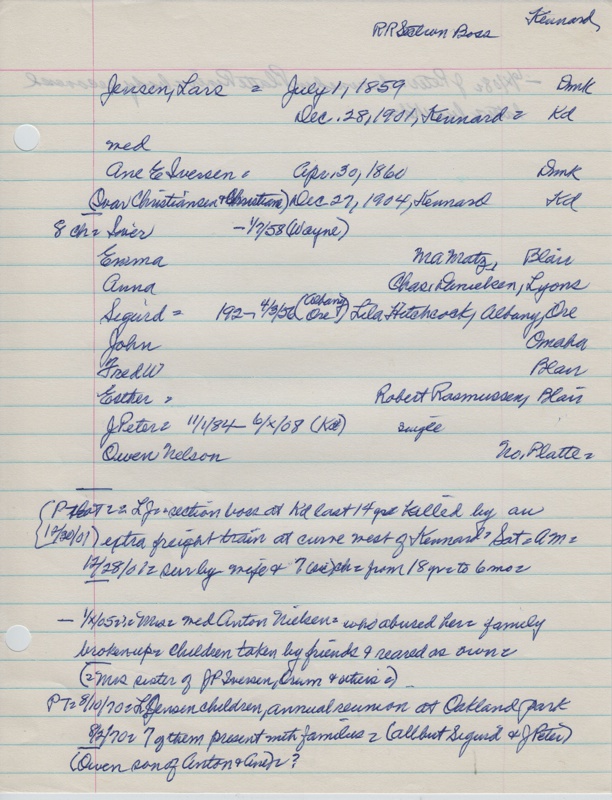 Kennard,
RR Section Boss
Jensen, Lars = July 1, 1859 Dmk
Dec. 28, 1901, Kennard = Kd
med
Ane E Iversen = Apr. 30, 1860 Dmk
(Ivar Christiansen + Christiane) Dec 27, 1904, Kennard Kd
8 ch = Iver - 1/7/58 (Wayne)
Emma Ma Matz, Blair
Anna Chas. Danielsen, Lyons
Sigurd = 192- 4/3/56 (Albany Ore) Lila Hitchcock, Albany, Ore
John Omaha
Fred W Blair
Esther = Robert Rasmussen, Blair
J Peter = 11/1/84 - 6/x/08 (Kd) single
Owen Nelson No. Platte =
= LJ = section boss at Kd last 14 yrs killed by an
extra freight train at curve west of Kennard = Sat = AM =
12/28/01 = surv by wife & 7 ch = from 18 yrs to 6 mo =
- 1/x/05 = Mrs = med Anton Nielsen = who abused her = family
broken up = children taken by friends & reared as own =
(= Mrs sister of JP Iversen, Orum & others =)
PT = 8/10/70 = L Jensen children, annual reunion at Oakland park
8/2/70 = 7 of them present with families = (all but Sigurd & J Peter)
(Owen son of Anton & Ane) = ?